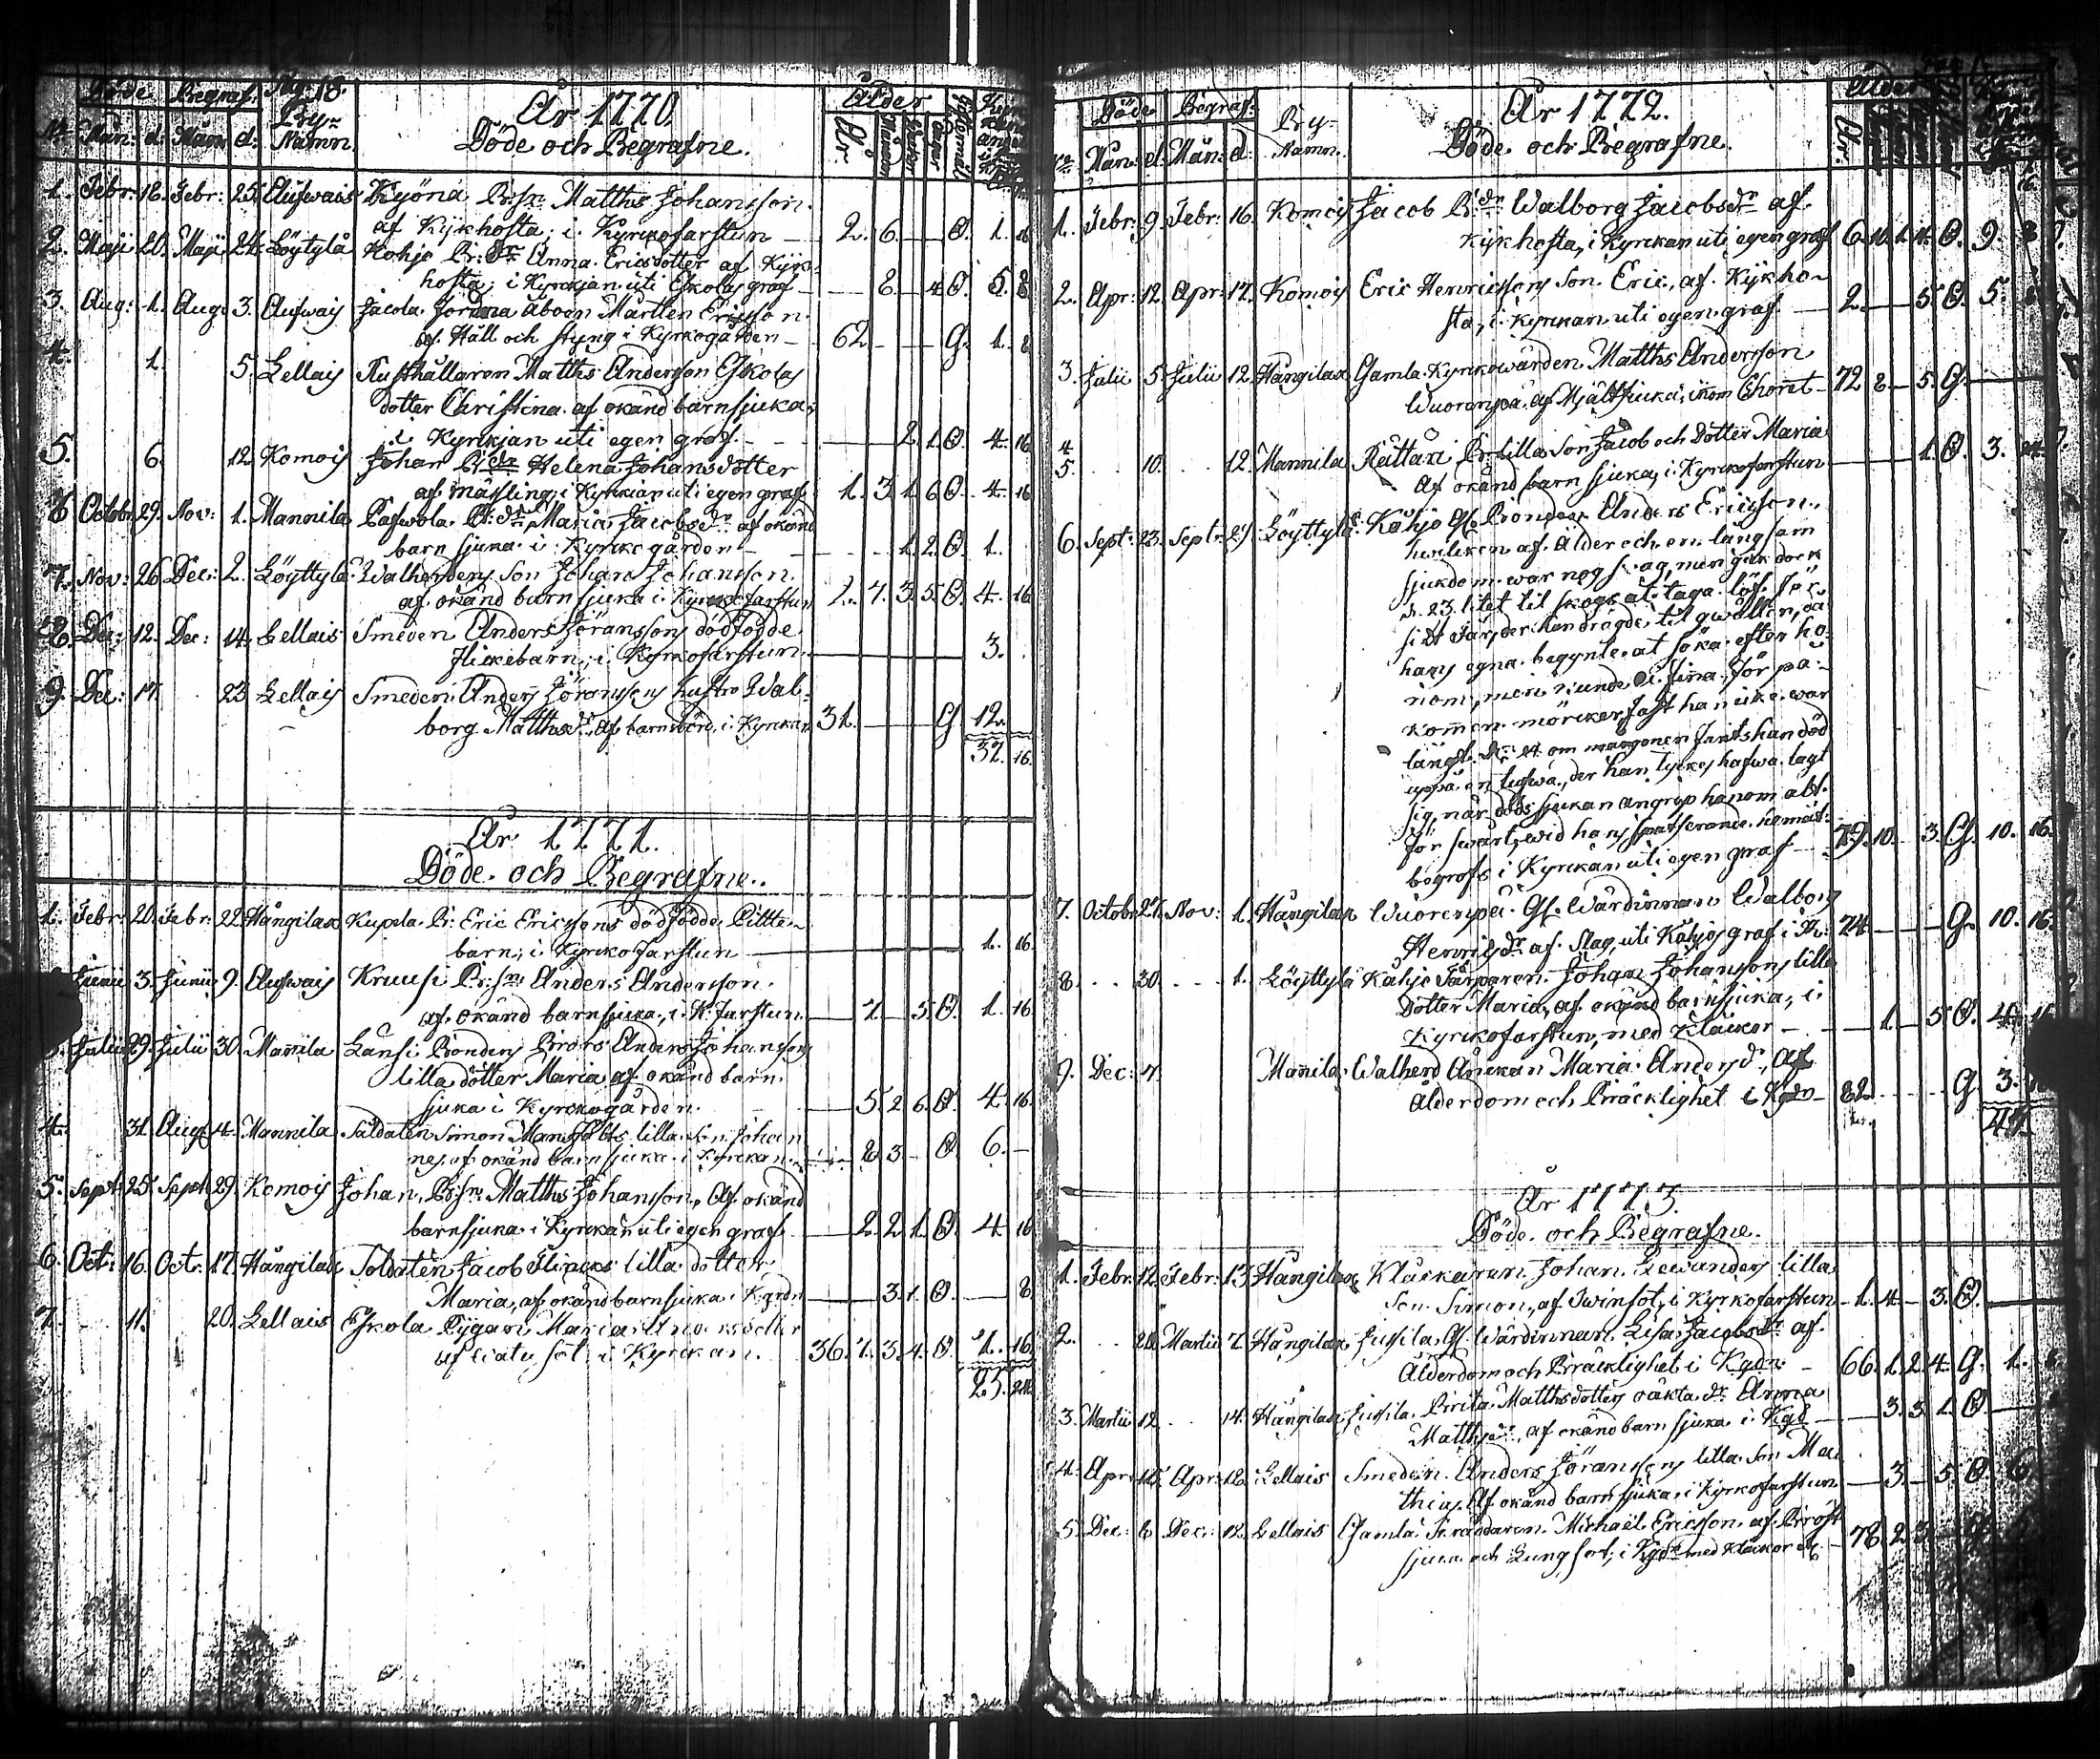 Döde Begraf: Pag: 18.
Åhr 1770
Ålder
No Mån: d. Mån d: By: Namn.
Döde och Begrafne.
Åhr. Månad Wickor Dagar
1. Febr: 18. Febr: 25. Aufwais Kyönä B:sn Matths Johansson
af Kijkhosta i Kyrkofarstun 2. 6. O. 1. 16
2. Maji 20. Maji 24. Löytylä Kohjo B: dr Anna Ericsdotter af Kijk-
hosta, i Kyrkjan uti Eskolas graf 8. 4 O. 5. 8
3. Aug: 1. Aug. 3. Aufwais Jacola Joruna åboen Mårten Ericsson
af Håll och styng i Kyrkogården 62. G. 1. 8
4. 1. 5. Lellais Rusthållaren Matths Andersson Eskolas
dotter Christina af okänd barnsjuka,
i Kyrkjan uti egen graf. 2. 1. O. 4. 16
5. 6. 12. Komois Johan B:dr Helena Johansdotter
af mässling, i Kyrkjan uti egen graf. 1. 3. 1. 6 O. 4. 16
6 Octobr. 29. Nov: 1. Mannila Pafwola B:dr Maria Jacobsdr af okänd
barnsjuka i Kyrkogården 1. 2. O. 1.
7. Nov: 26. Dec: 2. Löyttylä Walherdens Son Johan Johansson
af okänd barnsjuka i Kyrkofarstun 2. 7. 3. 5. O. 4. 16
8. Dec: 12. Dec: 14. Lellais Smeden Anders Jöranssons dödfödde
flickebarn, i Kyrkofarstun. 3.
9. Dec: 17. 23 Lellais Smeden Anders Jöranssons hustro Wal-
borg Matthsdr, af barnsbörd, i Kyrkan 31. G 12.
37. 16.
År 1771.
Döde och Begrafne.
1. Febr: 20. Febr: 22. Hångilax Kupila B: Eric Ericssons dödfödde Pilte-
barn, i Kyrkofarstun 1. 16
Junii 3. Junii 9. Aufwais Kruusi B:sn Anders Andersson
af okänd barnsjuka, i K:farstun. 7. 5. O. 1. 16.
3. Julii 29. Julii 30. Mannila Lansi Bondens Brors Anders Johanssons
lilla dotter Maria af okänd barn-
sjuka i Kyrkogården. 5. 2 6. O. 4. 16.
4. 31 Aug. 4. Mannila Saldaten Simon lilla Son Johan
nes, af okänd barnsjuka i Kyrkan 8 3 O. 6.
5. Sept: 25. Sept 29. Komois Johan B:sn Matths Johansson, af okänd
barnsjuka i Kyrckan uti egen graf 2. 2 1. O. 4. 16
6. Oct: 16. Oct: 17. Hångilax Soldaten Jacob Flincks lilla dotter
Maria, af okänd barnsjuka i Kgrdn 3. 1. O. 8
7. 11. 20. Lellais Eskola Pygan Maria Andersdotter
af sot, i Kyrckan. 36. 7. 3. 4. O 1. 16
23. 24.
Döde Begraf:
År 1772.
Ålder
No Mån: d. Mån: d: By: Namn.
Döde och Begrafne.
1. Febr: 9. Febr: 16. Komois Jacob B:dr Walborg Jacobsdr af
Kijkhosta, i Kyrckan uti egen graf 6. 10. 1. 4. O. 9. 8
2. Apr: 12. Apr: 17. Komois Eric Henricssons Son Eric, af Kijkho-
sta, i Kyrckan uti egen graf. 2. 5. O. 5.
3. Julii 5. Julii 12. Hångilax Gamla Kyrkowärden Matths Andersson
Wuorenpä af Mjältsjuka, inom Choret 72 8 5. G.
4.
5. 10. 12. Mannila Rättäri B: lilla Son Jacob och Dotter Maria
af okänd barnsjuka, i Kyrkofarstun 1. O. 3. 24.
6. Sept: 23. Sept: 27 Löyttylä Kohjo Gl: Bonden Anders Ericsson,
hwilken af Ålder och en långsam
sjukdom war nog swag, men gick dock
d. 23 litet til skogs at taga löf för
sitt Får, der han drögde til qwällen, då
hans egna begynte at söka efter ho-
nom, men kunde ei finna, för på-
kommen mörcker, fast han icke war
långt. Dr 24 om morgonen fants han död
uppå en tufwa, der han tyckes hafwa lagt
sig, när döds sjukan angrep honom alt
för swårt, wid hans spatserande hemåt.
begrofs i Kyrckan uti egen graf 79. 10. 3. G. 10. 16.
7. Octobr. 27. Nov: 1. Hångilax Wuorenpä Gl. Wärdinnan Walborg
Henricsdr af Slag, uti Kohjos graf i K: 74 G. 10. 16.
8. 30. 1. Löyttylä Kohjo Torparen Johan Johanssons lilla
Dotter Maria, af okänd barnsjuka, i
Kyrkofarstun, med Kläckor 1. 5 O. 4.
9. Dec: 7. Mannila Walherd Änckan Maria Andersdr, af
Ålderdom och Bräcklighet i Kgdn 82. G. 3.
47.
År 1773.
Döde och Begrafne.
1. Febr. 12. Febr: 13. Hångilax Klåckaren Johan Lewanders lilla
Son Simon, af Twinsot, i Kyrkofarstun 1. 4. 3. O.
2. 28 Martii 7. Hångilax Jussila Gl. Wärdinnan Lisa Jacobsdr af
Ålderdom och Bräcklighet i Kgdn. 66. 1. 2. 4. G. 1.
3. Martii 12. 14. Hångilax Jussila Brita Matthsdotters oäkta dr Anna
Matthsdr, af okänd barnsjuka i Kgd 3. 3 1. O.
4. Apr: 15. Apr: 18. Lellais Smeden Anders Jöranssons lilla Son Mat
thias, Af okänd barnsjuka, i Kyrkofarstun 3. 5. O.
5. Dec: 6 Dec: 12. Lellais Gamla Michaël Ericsson af Bröst
sjuka och Lungsot, i Kgdn med Kläckor 78 2. 3.